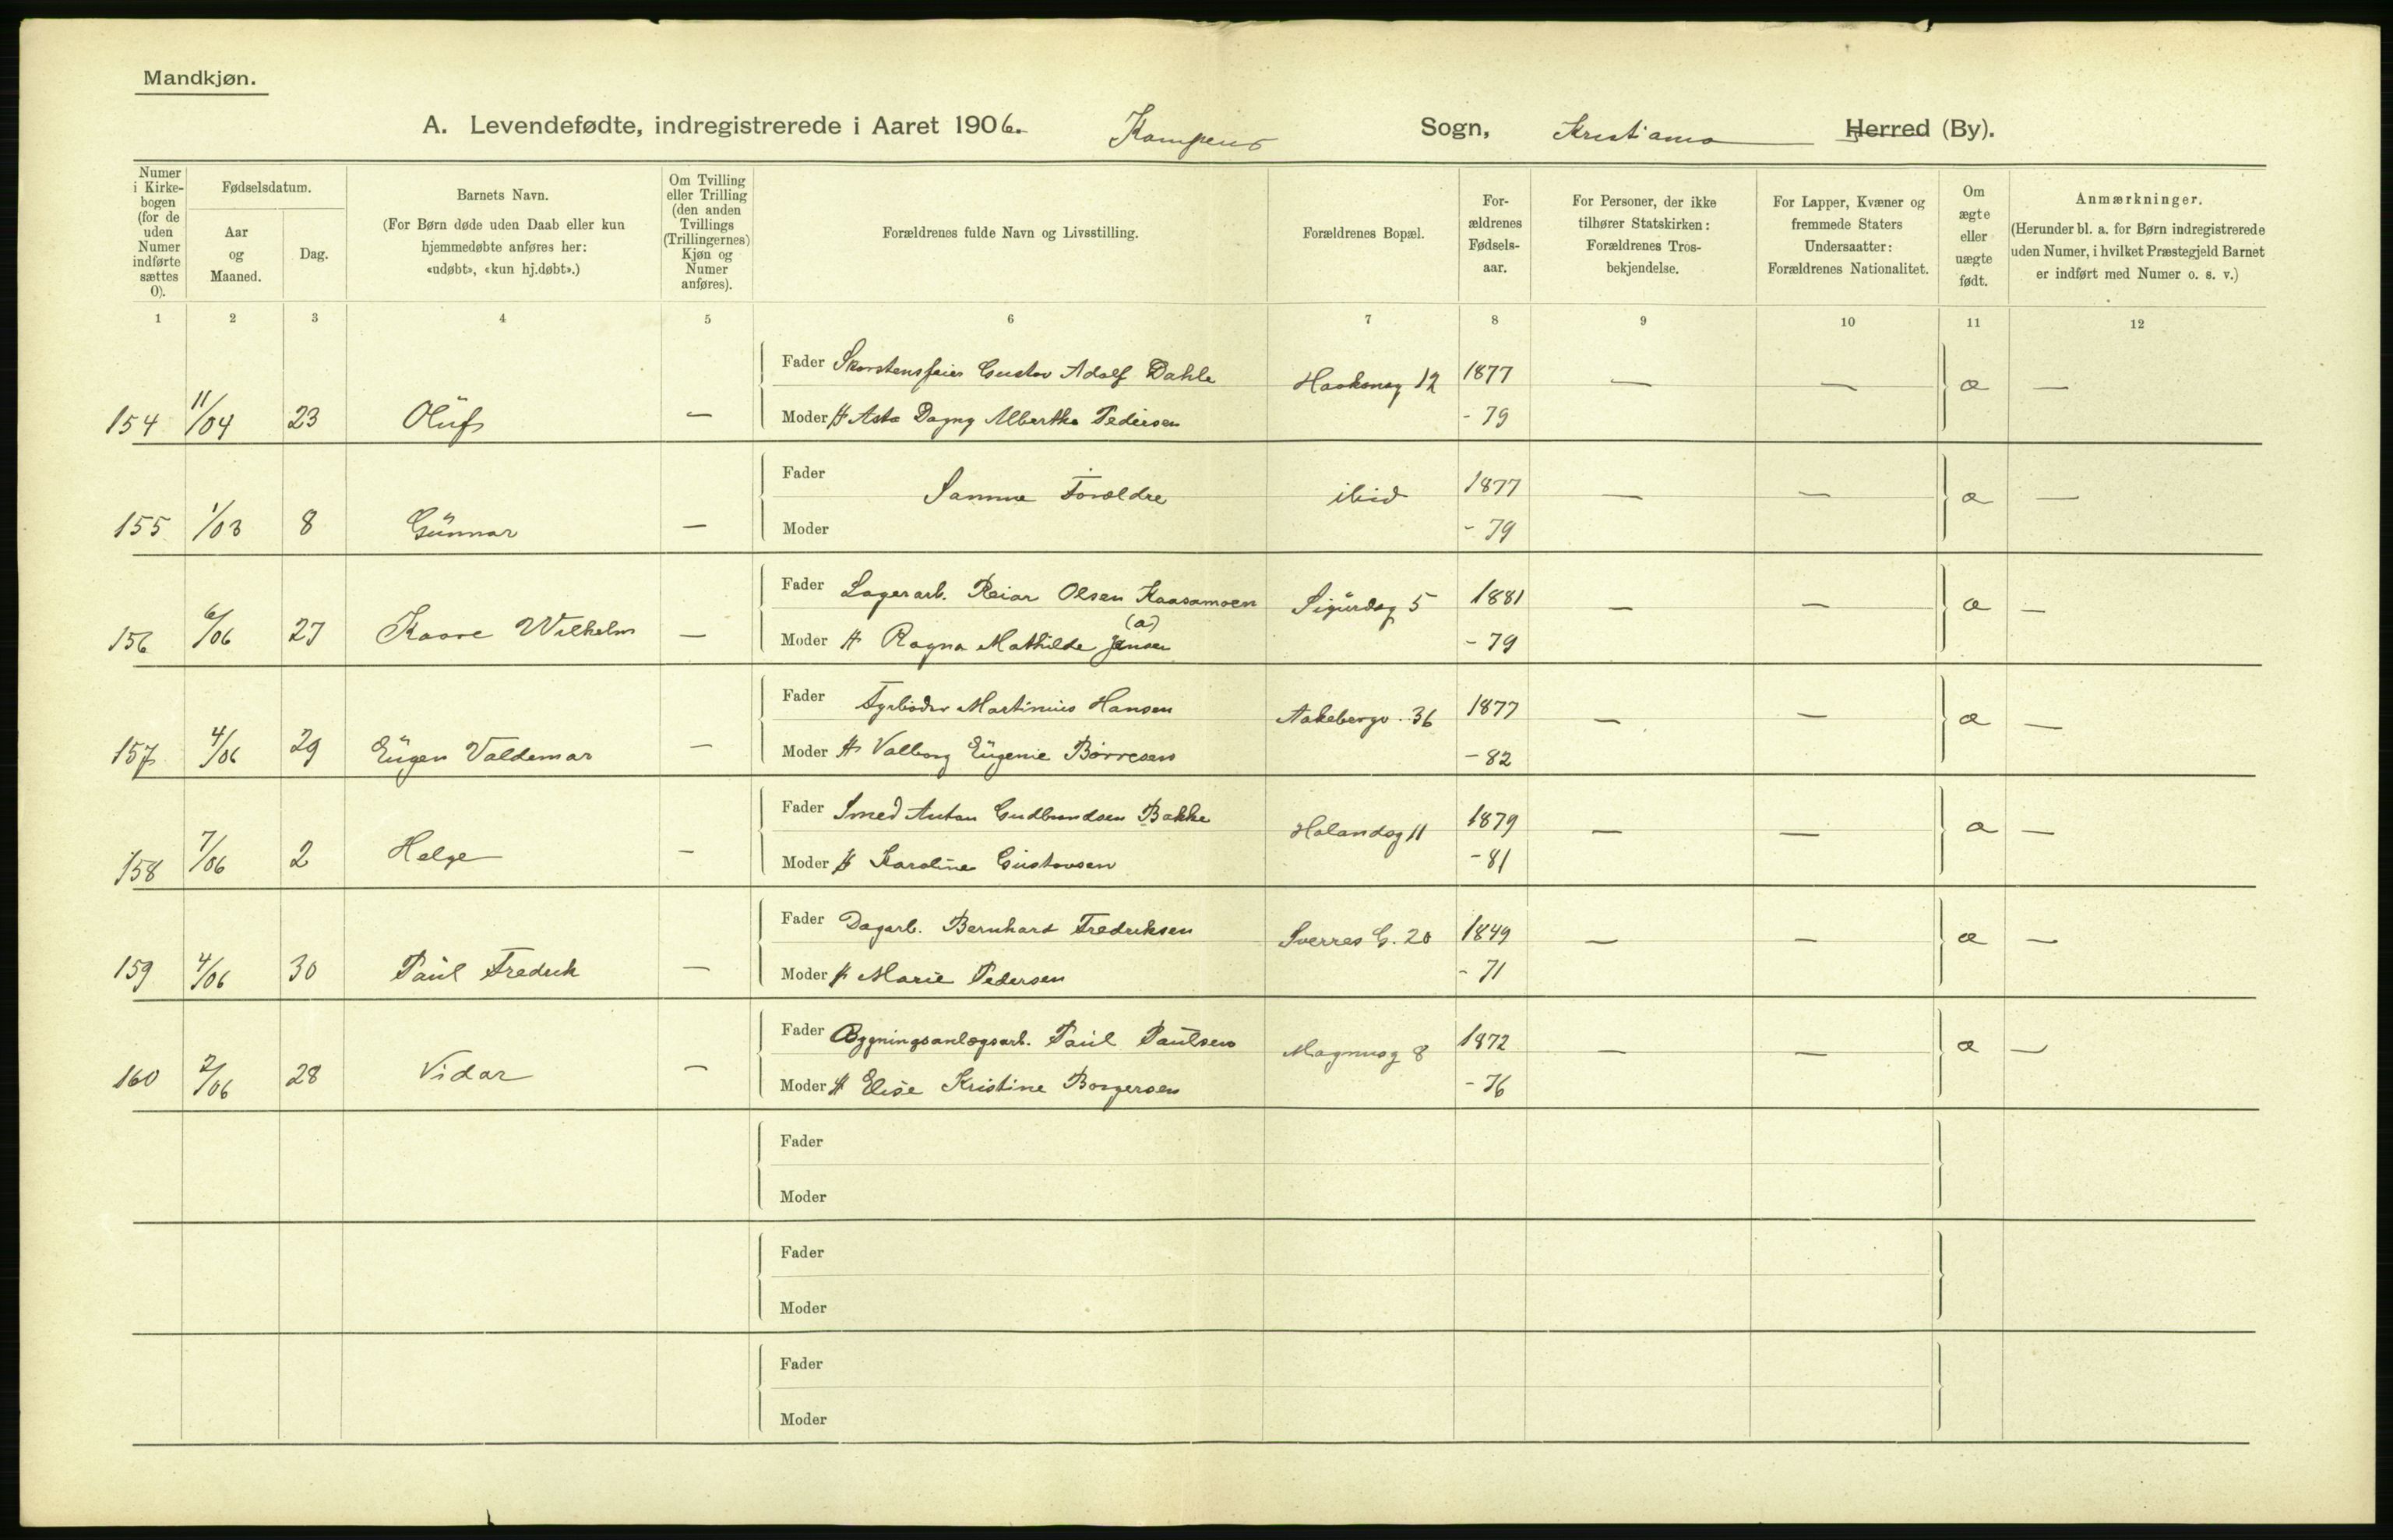 Mandkjøn.
A. Levendefødte, indregistrerede i Aaret 1906. Kampens Sogn, Kristiania Herred (By).
Numer i Kirke-bogen (for de uden Numer indførte sættes 0).
Fødselsdatum.
Aar og Maaned.
Dag.
Barnets Navn.
(For Børn døde uden Daab eller kun hjemmedøbte anføres her: «udøbt», «kun hj.døbt».)
Om Tvilling eller Trilling (den anden Tvillings (Trillingernes) Kjøn og Numer anføres).
Forældrenes fulde Navn og Livsstilling.
Forældrenes Bopæl.
For-ældrenes Fødsels-aar.
For Personer, der ikke tilhører Statskirken: Forældrenes Tros-bekjendelse.
For Lapper, Kvæner og fremmede Staters Undersaatter: Forældrenes Nationalitet.
Om ægte eller uægte født.
Anmærkninger.
(Herunder bl. a. for Børn indregistrerede uden Numer, i hvilket Præstegjeld Barnet er indført med Numer o. s. v.)
1 2 3 4 5 6 7 8 9 10 11 12
Fader Skorstensfeier Gustav Adolf Dahle Haakonsg 12 1877 — — æ —
154 11/04 23 Oluf — Moder H Asta Dagny Albertha Pedersen - 79
Fader Samme Forældre ibid 1877 — — æ —
155 1/03 8 Gunnar — Moder - 79
Fader Lagerarb. Reiar Olsen Kaasamoen Sigurdsg 5 1881 — — æ —
(a)
156 6/06 27 Kaare Wilhelm — Moder H Ragna Mathilde Jensen - 79
Fader Fyrbøder Martinius Hansen Aakebergv. 36 1877 — — æ —
157 4/06 29 Eugen Valdemar — Moder H Valborg Eugenie Børresen - 82
Fader Smed Anton Gudbrandsen Bakke Hølandsg 11 1879 — — æ —
158 7/06 2 Helge — Moder H Karoline Gustavsen - 81
Fader Dagarb. Bernhard Fredriksen Sverres G. 20 1849 — — æ —
159 4/06 30 Paul Fredrik — Moder H Marie Pedersen - 71
Fader Bygningsanlægsarb. Paul Paulsen Magnusg 8 1872 — — æ —
160 2/06 28 Vidar — Moder H Elise Kristine Borgersen - 76
Fader
Moder
Fader
Moder
Fader
Moder